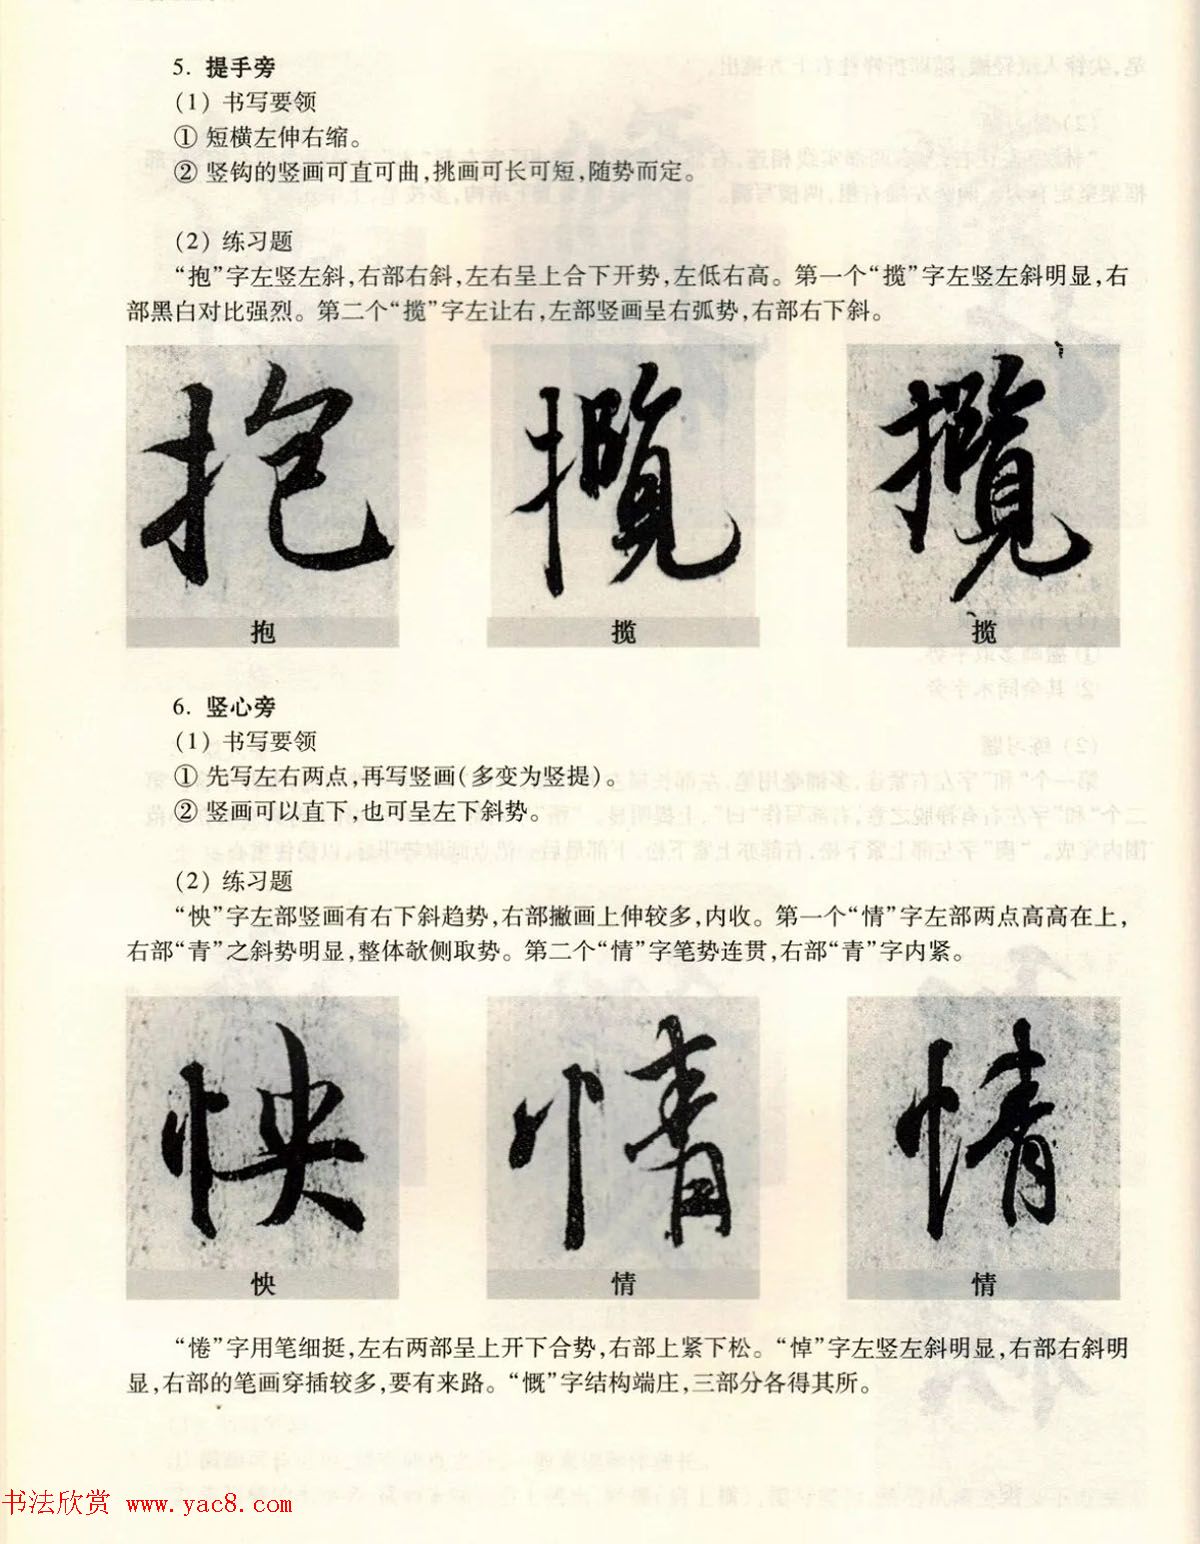 5. 提手旁
(1) 书写要领
① 短横左伸右缩。
② 竖钩的竖画可直可曲,挑画可长可短,随势而定。
(2) 练习题
“抱”字左竖左斜,右部右斜,左右呈上合下开势,左低右高。第一个“揽”字左竖左斜明显,右
部黑白对比强烈。第二个“揽”字左让右,左部竖画呈右弧势,右部右下斜。
抱 揽 揽
抱 揽 揽
6. 竖心旁
(1) 书写要领
① 先写左右两点,再写竖画(多变为竖提)。
② 竖画可以直下,也可呈左下斜势。
(2) 练习题
“怏”字左部竖画有右下斜趋势,右部撇画上伸较多,内收。第一个“情”字左部两点高高在上,
右部“青”之斜势明显,整体欹侧取势。第二个“情”字笔势连贯,右部“青”字内紧。
怏 情 情
怏 情 情
“惓”字用笔细挺,左右两部呈上开下合势,右部上紧下松。“悼”字左竖左斜明显,右部右斜明
显,右部的笔画穿插较多,要有来路。“慨”字结构端庄,三部分各得其所。
书法欣赏 www.yac8.com